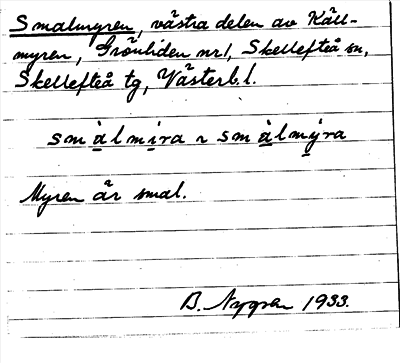 Smalmyren, västra delen av Käll-
myren, Grönliden nr1, Skellefteå sn,
Skellefteå tg, Västerb.l.
smàlmira ~ smàlmýra
Myren är smal.
B. Nygren 1933.